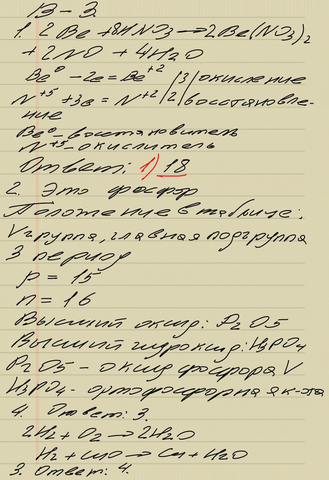 В - 3.
1. 2Be + 8HNO3 → 2Be(NO3)2
+ 2NO + 4H2O
Be⁰ - 2e = Be⁺² |3| окисление
N⁺⁵ + 3e = N⁺² |2| восстановле-
ние
Be⁰ - восстановитель
N⁺⁵ - окислитель
Ответ: 1) 18
2. Это фосфор
Положение в таблице:
V группа, главная подгруппа
3 период
p = 15
n = 16
Высший оксид: P2O5
Высший гидроксид: H3PO4
P2O5 - оксид фосфора V
H3PO4 - ортофосфорная к-та
4. Ответ: 3.
2H2 + O2 → 2H2O
H2 + CuO → Cu + H2O
3. Ответ: 4.